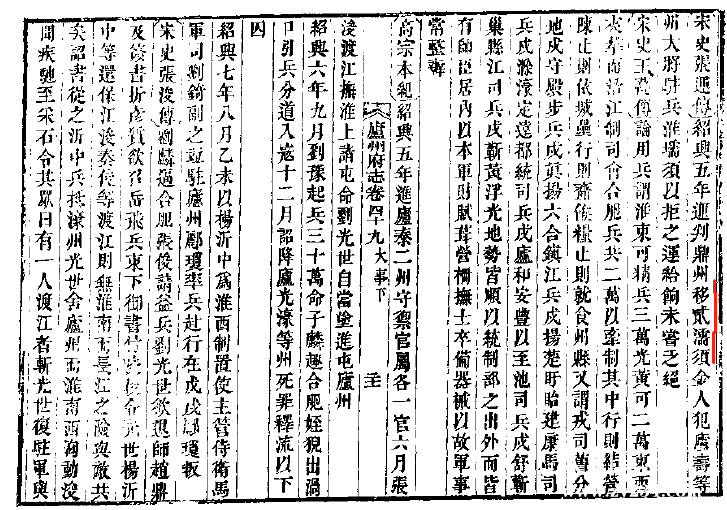 宋史張運傳紹興五年通判鼎州移貳濡須金人犯廬壽等
州大將駐兵淮壖須以拒之運給餉未嘗乏絕
宋史王 傳論用兵謂淮東可精兵三萬光黃可二萬東西
夾擊而沿江制司會合肥兵共二萬以牽制其中行則結營
陳止則依城壘行則齎 糧止則就食州縣又謂戎司舊分
地戍守殿步兵戍真揚六合鎮江兵戍揚楚盱眙建康馬司
兵戍滁濠定遠都統司兵戍廬和安豐以至池司兵戍舒蘄
巢縣江司兵戍蘄黃浮光地勢皆順以統制部之出外而皆
有帥臣居內以本軍財賦葺營柵撫士卒備器械以故軍事
常整辦
高宗本紀紹興五年進廬秦二州守禦官屬各一官六月張
廬州府志卷 九 大事下
浚渡江撫淮上諸屯命劉光世自當塗進屯廬州
紹興六年九月劉豫起兵三十萬命子麟趣合肥姪猊出渦
口引兵分道入寇十二月詔降廬光濠等州死罪釋流以下
囚
紹興七年八月乙未以楊沂中為淮西制置使主管侍衛馬
軍司劉錡副之並駐廬州酈瓊率兵赴行在戊戌酈瓊叛
宋史張浚傳劉麟逼合肥張俊請益兵劉光世欲退師趙鼎
及簽書折彥質欲召岳飛兵東下御書付浚 令光世楊沂
中等還保江浚奏俊等渡江則無淮南而長江之險與敵共
矣詔書從之沂中兵抵濠州光世舍廬州而淮南西洶動浚
聞疾馳至采石令其眾曰有一人渡江者斬光世復駐軍與